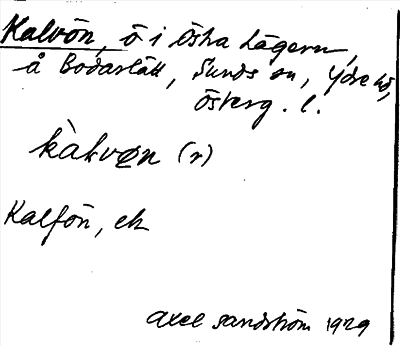 Kalvön, ö i östra Lägern,
å Bodarätt, Sunds sn, Ydre hd,
Österg. l.
kàlvøn (r)
Kalfön, ek
Axel Sandström 1929